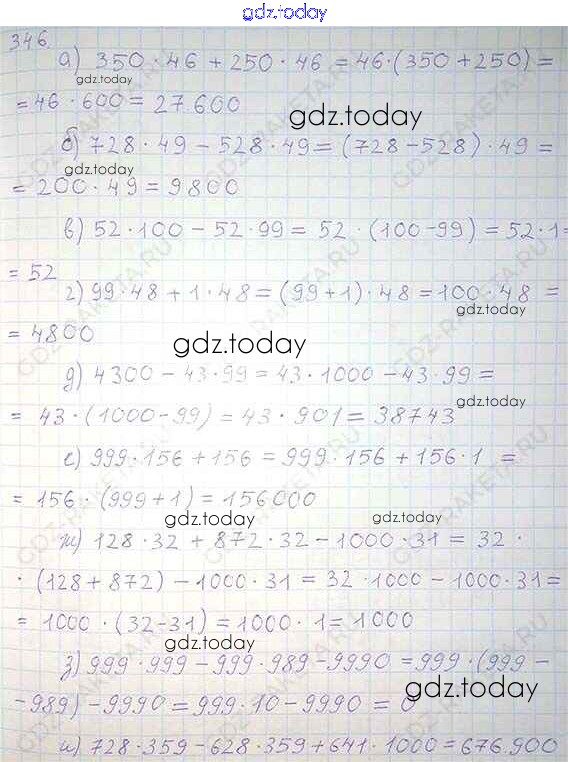 gdz.today
346.
а) 350 · 46 + 250 · 46 = 46 · (350 + 250) =
gdz.today
= 46 · 600 = 27 600
gdz.today
б) 728 · 49 - 528 · 49 = (728 - 528) · 49 =
gdz.today
= 200 · 49 = 9800
в) 52 · 100 - 52 · 99 = 52 · (100 - 99) = 52 · 1 =
= 52
г) 99 · 48 + 1 · 48 = (99 + 1) · 48 = 100 · 48 =
gdz.today
= 4800
gdz.today
д) 4300 - 43 · 99 = 43 · 1000 - 43 · 99 =
gdz.today
= 43 · (1000 - 99) = 43 · 901 = 38743
е) 999 · 156 + 156 = 999 · 156 + 156 · 1 =
= 156 · (999 + 1) = 156000
gdz.today gdz.today
ж) 128 · 32 + 872 · 32 - 1000 · 31 = 32 ·
· (128 + 872) - 1000 · 31 = 32 · 1000 - 1000 · 31 =
= 1000 · (32 - 31) = 1000 · 1 = 1000
gdz.today
з) 999 · 999 - 999 · 989 - 9990 = 999 · (999 -
gdz.today
- 989) - 9990 = 999 · 10 - 9990 = 0
gdz.today
и) 728 · 359 - 628 · 359 + 641 · 1000 = 676.900
GDZ-RAKETA.RU